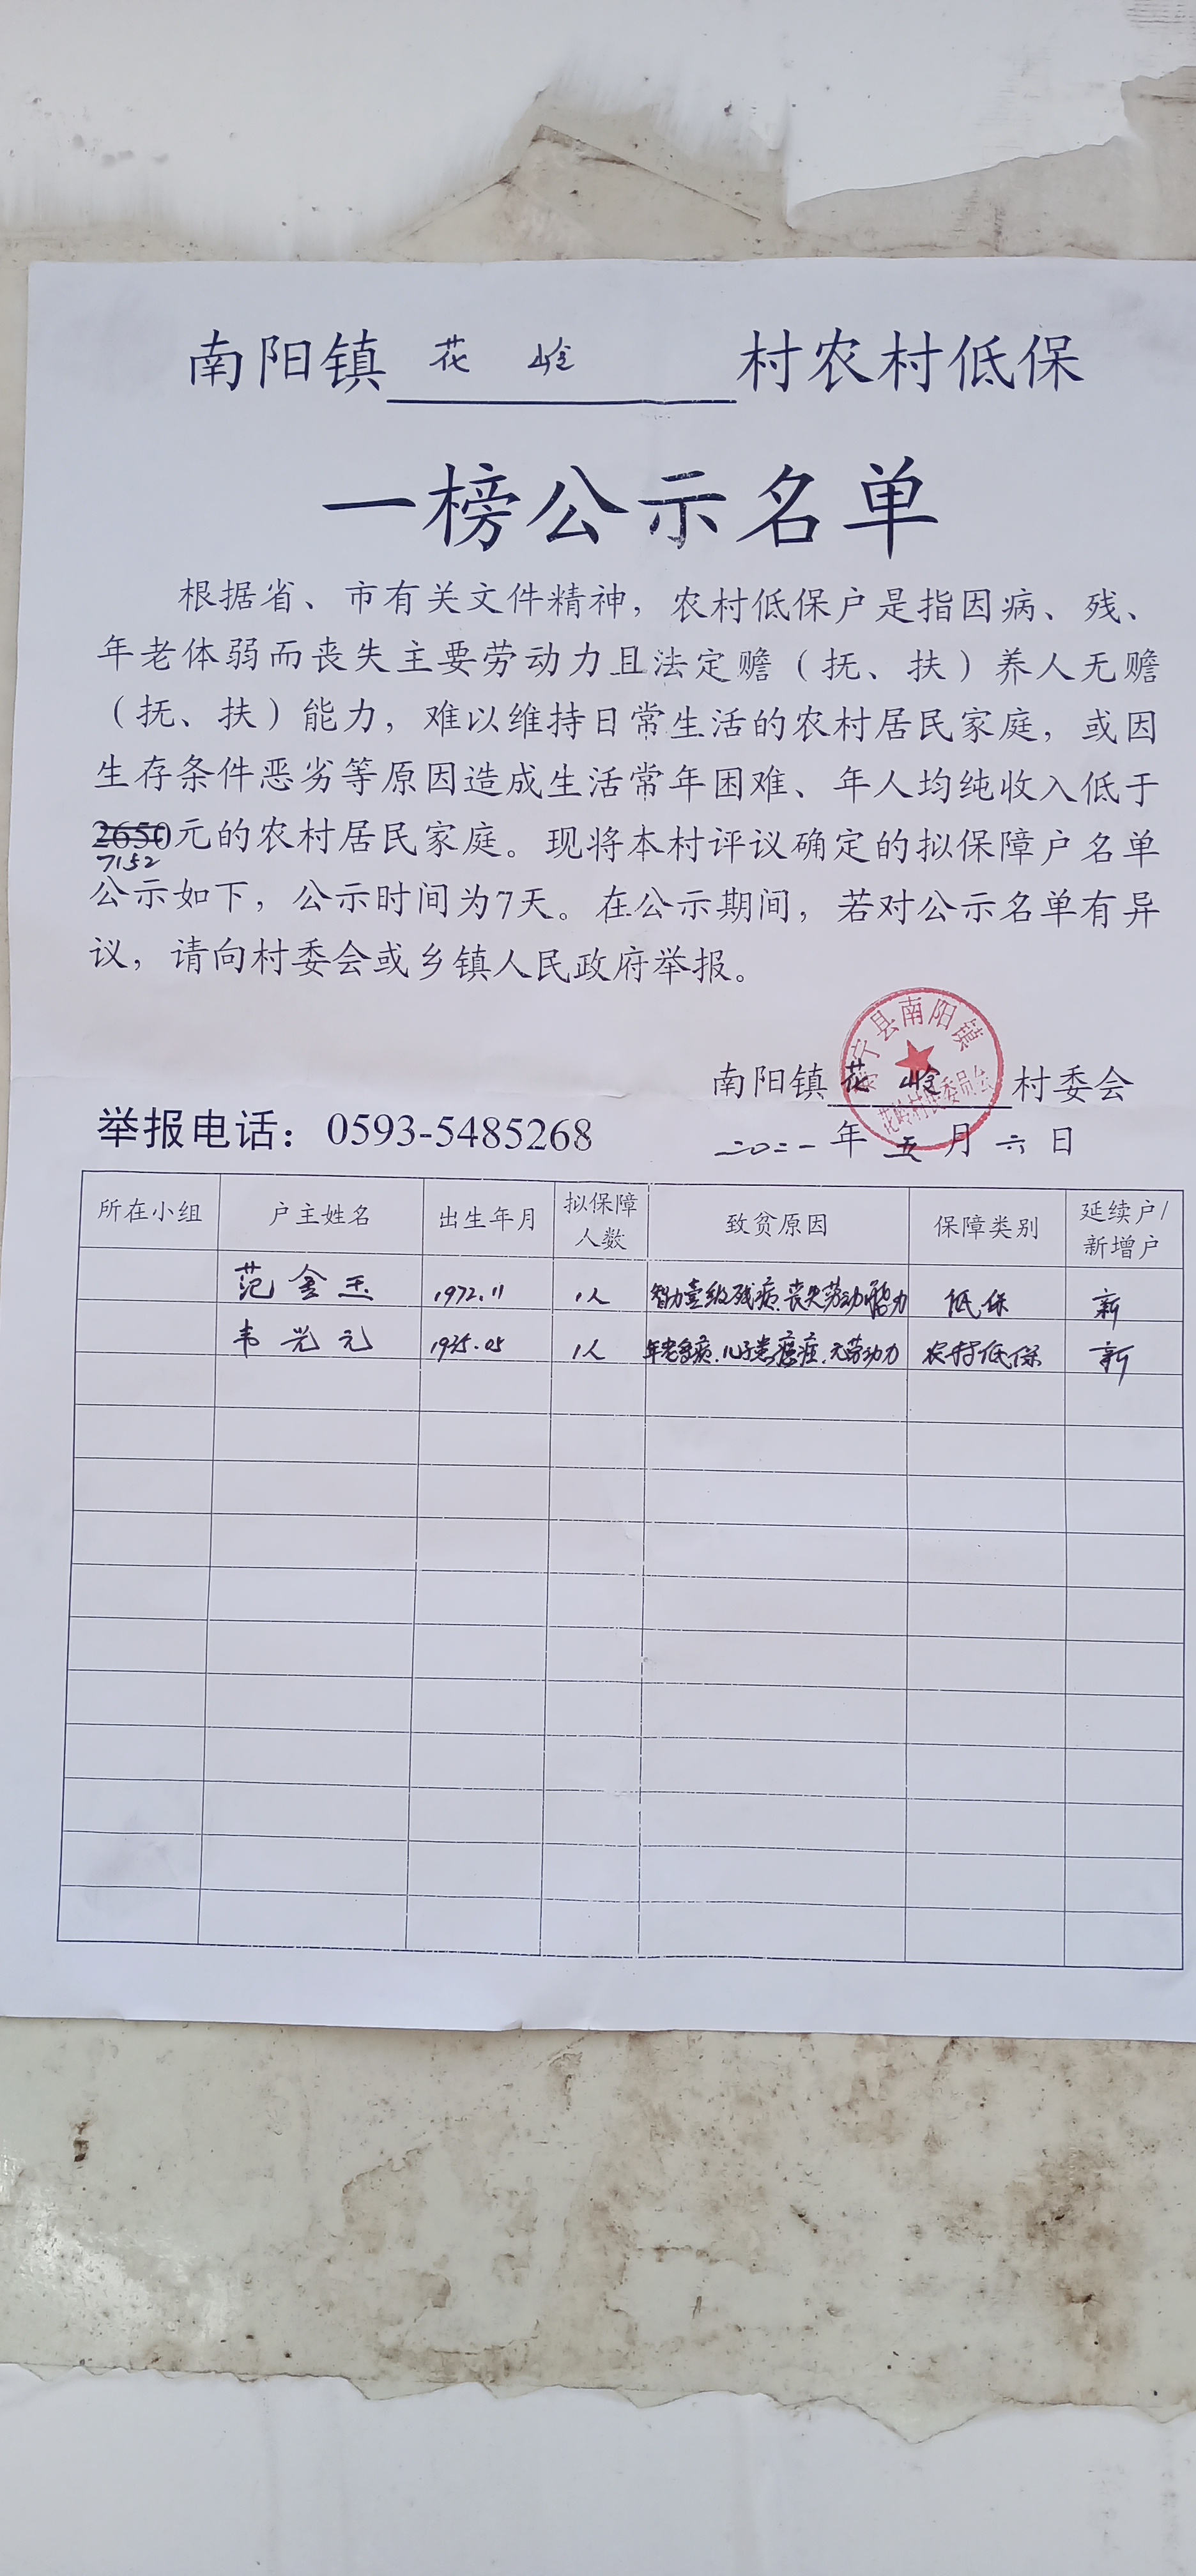 南阳镇 花岭 村农村低保
一榜公示名单
根据省、市有关文件精神，农村低保户是指因病、残、
年老体弱而丧失主要劳动力且法定赡（抚、扶）养人无赡
（抚、扶）能力，难以维持日常生活的农村居民家庭，或因
生存条件恶劣等原因造成生活常年困难、年人均纯收入低于
2650元的农村居民家庭。现将本村评议确定的拟保障户名单
7152
公示如下，公示时间为7天。在公示期间，若对公示名单有异
议，请向村委会或乡镇人民政府举报。
寿宁县南阳镇
花岭村民委员会
南阳镇 花岭 村委会
举报电话：0593-5485268
二〇二一年五月六日
所在小组 户主姓名 出生年月 拟保障人数 致贫原因 保障类别 延续户/新增户
范金玉 1972.11 1人 智力壹级残疾、丧失劳动能力 低保 新
韦光元 1935.05 1人 年老多病、儿子患癌症、无劳动力 农村低保 新